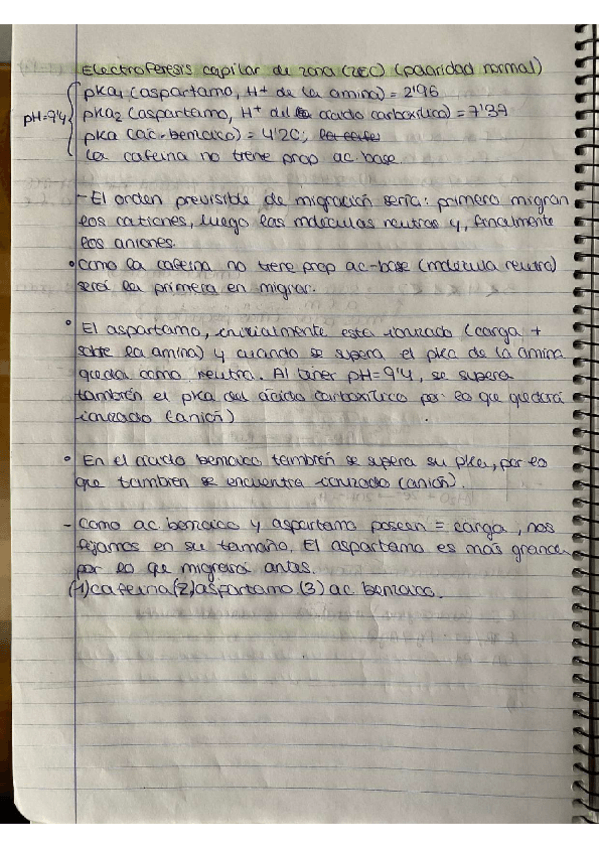 Electroferesis capilar de zona (ZEC) (polaridad normal)
pka1 (aspartamo, H+ de la amina) = 2'96
pH=9'4 pka2 (aspartamo, H+ del ácido carboxílico) = 7'39
pka (ác. benzoico) = 4'20;
La cafeína no tiene prop ac. base.
- El orden previsible de migración sería: primero migran
los cationes, luego las moléculas neutras y, finalmente
los aniones.
• Como la cafeína no tiene prop ac-base (molécula neutra)
será la primera en migrar.
• El aspartamo, inicialmente está ionizado (carga +
sobre la amina) y cuando se supera el pka de la amina
queda como neutra. Al tener pH=9'4, se supera
también el pka del ácido carboxílico por lo que quedará
ionizado (anión)
• En el ácido benzoico también se supera su pka, por lo
que también se encuentra ionizado (anión).
- Como ac. benzoico y aspartamo poseen = carga, nos
fijamos en su tamaño. El aspartamo es más grande
por lo que migrará antes.
(1) cafeína (2) aspartamo (3) ac benzoico.